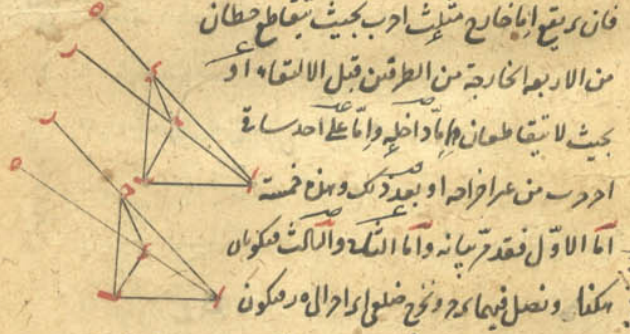 فان ء يقع اما خارج مثلث ا د ب بحيث يتقاطع خطان
من الاربعه الخارجة من الطرفين قبل الالتقاء او
بحيث لا يتقاطعان واما داخله واما على احد ساقى
ا د د ب من غير اخراجه او بعد ذلك وهذه خمسة
اما الاول فقد مر بيانه واما الثانى والثالث فيكونان
هكذا ونصل فيهما ء د ونخرج ضلعى ا ء ا د الى ه ر فيكون